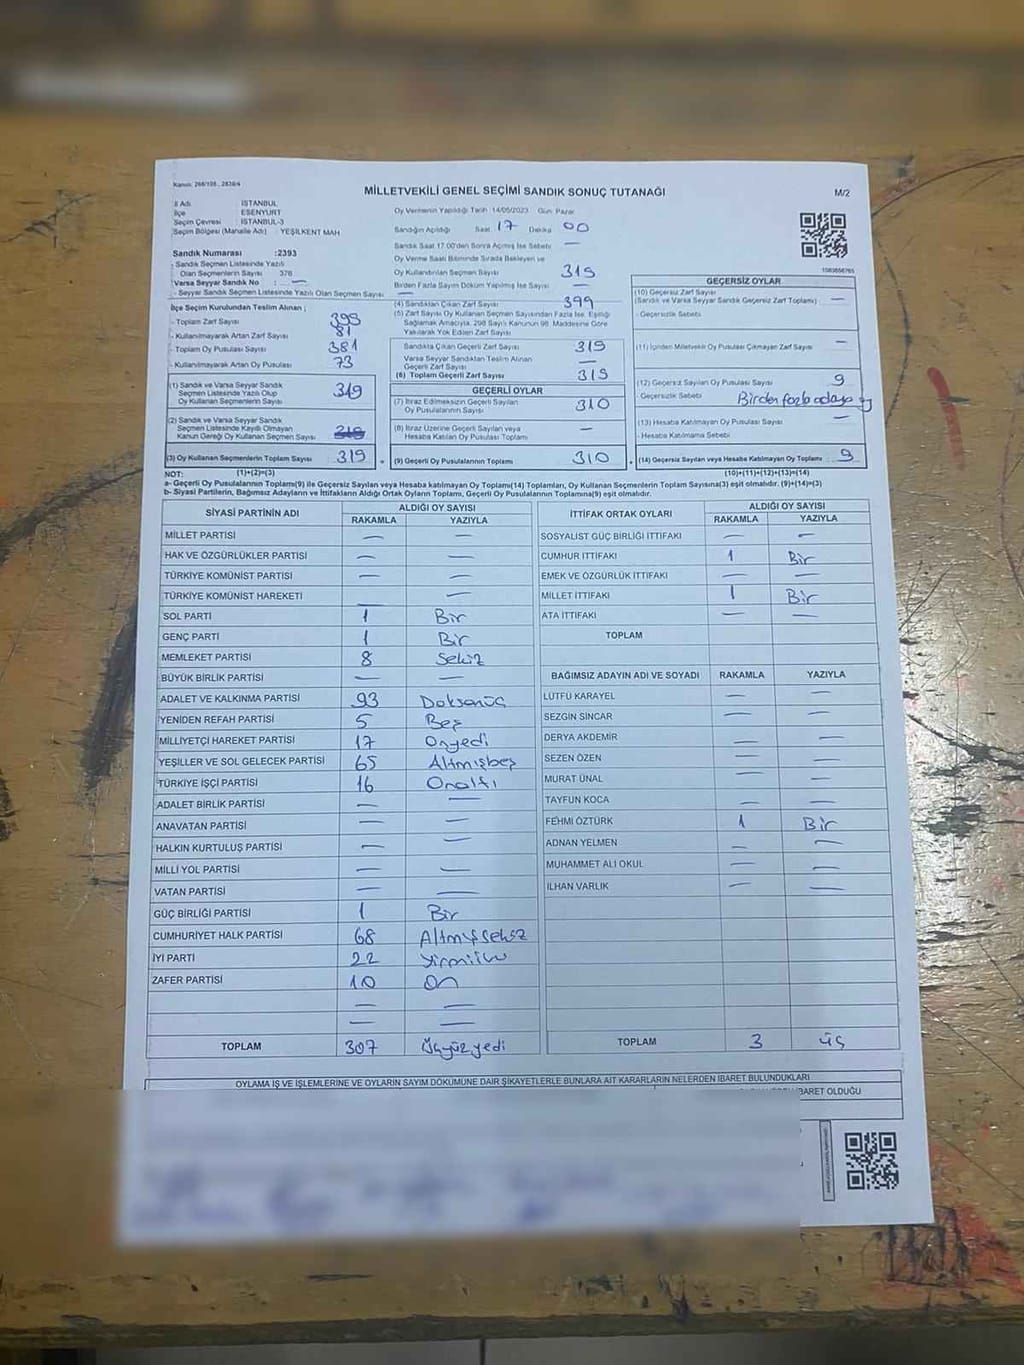 Kanun: 298/105, 2839/4
MİLLETVEKİLİ GENEL SEÇİMİ SANDIK SONUÇ TUTANAĞI
M/2
İl Adı : İSTANBUL
İlçe : ESENYURT
Seçim Çevresi : İSTANBUL-3
Seçim Bölgesi (Mahalle Adı) : YEŞİLKENT MAH
Sandık Numarası :2393
- Sandık Seçmen Listesinde Yazılı
Olan Seçmenlerin Sayısı 378
Varsa Seyyar Sandık No : —
- Seyyar Sandık Seçmen Listesinde Yazılı Olan Seçmen Sayısı —
İlçe Seçim Kurulundan Teslim Alınan ;
- Toplam Zarf Sayısı
- Kullanılmayarak Artan Zarf Sayısı 81
- Toplam Oy Pusulası Sayısı 381
- Kullanılmayarak Artan Oy Pusulası 73
(1) Sandık ve Varsa Seyyar Sandık
Seçmen Listesinde Yazılı Olup
Oy Kullanan Seçmenlerin Sayısı 319
(2) Sandık ve Varsa Seyyar Sandık
Seçmen Listesinde Kaydı Olmayan
Kanun Gereği Oy Kullanan Seçmen Sayısı
(3) Oy Kullanan Seçmenlerin Toplam Sayısı 319
Oy Vermenin Yapıldığı Tarih 14/05/2023 Gün: Pazar
Sandığın Açıldığı Saat 17 Dakika 00
Sandık Saat 17.00'den Sonra Açılmış İse Sebebi —
Oy Verme Saati Bitiminde Sırada Bekleyen ve
Oy Kullandırılan Seçmen Sayısı 319
Birden Fazla Sayım Döküm Yapılmış İse Sayısı —
(4) Sandıktan Çıkan Zarf Sayısı 399
(5) Zarf Sayısı Oy Kullanan Seçmen Sayısından Fazla İse, Eşitliği
Sağlamak Amacıyla, 298 Sayılı Kanunun 98. Maddesine Göre
Yakılarak Yok Edilen Zarf Sayısı
Sandıkta Çıkan Geçerli Zarf Sayısı 319
Varsa Seyyar Sandıktan Teslim Alınan
Geçerli Zarf Sayısı —
(6) Toplam Geçerli Zarf Sayısı 319
GEÇERLİ OYLAR
(7) İtiraz Edilmeksizin Geçerli Sayılan
Oy Pusulalarının Sayısı 310
(8) İtiraz Üzerine Geçerli Sayılan veya
Hesaba Katılan Oy Pusulası Toplamı —
(9) Geçerli Oy Pusulalarının Toplamı 310
GEÇERSİZ OYLAR
(10) Geçersiz Zarf Sayısı
(Sandık ve Varsa Seyyar Sandık Geçersiz Zarf Toplamı) —
- Geçersizlik Sebebi
(11) İçinden Milletvekili Oy Pusulası Çıkmayan Zarf Sayısı —
(12) Geçersiz Sayılan Oy Pusulası Sayısı 9
- Geçersizlik Sebebi Birden fazla adaya oy
(13) Hesaba Katılmayan Oy Pusulası Sayısı —
- Hesaba Katılmama Sebebi
(14) Geçersiz Sayılan veya Hesaba Katılmayan Oy Toplamı 9
NOT: (1)+(2)=(3) (10)+(11)+(12)+(13)=(14)
a- Geçerli Oy Pusulalarının Toplamı(9) ile Geçersiz Sayılan veya Hesaba katılmayan Oy Toplamı(14) Toplamları, Oy Kullanan Seçmenlerin Toplam Sayısına(3) eşit olmalıdır. (9)+(14)=(3)
b- Siyasi Partilerin, Bağımsız Adayların ve İttifakların Aldığı Ortak Oyların Toplamı, Geçerli Oy Pusulalarının Toplamına(9) eşit olmalıdır.
SİYASİ PARTİNİN ADI ALDIĞI OY SAYISI
RAKAMLA YAZIYLA
MİLLET PARTİSİ — —
HAK VE ÖZGÜRLÜKLER PARTİSİ — —
TÜRKİYE KOMÜNİST PARTİSİ — —
TÜRKİYE KOMÜNİST HAREKETİ —
SOL PARTİ 1 Bir
GENÇ PARTİ 1 Bir
MEMLEKET PARTİSİ 8 Sekiz
BÜYÜK BİRLİK PARTİSİ — —
ADALET VE KALKINMA PARTİSİ 93 Doksanüç
YENİDEN REFAH PARTİSİ 5 Beş
MİLLİYETÇİ HAREKET PARTİSİ 17 Onyedi
YEŞİLLER VE SOL GELECEK PARTİSİ 65 Altmışbeş
TÜRKİYE İŞÇİ PARTİSİ 16 Onaltı
ADALET BİRLİK PARTİSİ — —
ANAVATAN PARTİSİ — —
HALKIN KURTULUŞ PARTİSİ — —
MİLLİ YOL PARTİSİ — —
VATAN PARTİSİ — —
GÜÇ BİRLİĞİ PARTİSİ 1 Bir
CUMHURİYET HALK PARTİSİ 68 Altmışsekiz
İYİ PARTİ 22 Yirmiiki
ZAFER PARTİSİ 10 On
— —
— —
TOPLAM 307 Üçyüzyedi
İTTİFAK ORTAK OYLARI ALDIĞI OY SAYISI
RAKAMLA YAZIYLA
SOSYALİST GÜÇ BİRLİĞİ İTTİFAKI — —
CUMHUR İTTİFAKI 1 Bir
EMEK VE ÖZGÜRLÜK İTTİFAKI — —
MİLLET İTTİFAKI 1 Bir
ATA İTTİFAKI — —
TOPLAM
BAĞIMSIZ ADAYIN ADI VE SOYADI RAKAMLA YAZIYLA
LÜTFÜ KARAYEL — —
SEZGİN SİNCAR — —
DERYA AKDEMİR — —
SEZEN ÖZEN — —
MURAT ÜNAL — —
TAYFUN KOCA — —
FEHMİ ÖZTÜRK 1 Bir
ADNAN YELMEN — —
MUHAMMET ALİ OKUL — —
İLHAN VARLIK — —
TOPLAM 3 üç
OYLAMA İŞ VE İŞLEMLERİNE VE OYLARIN SAYIM DÖKÜMÜNE DAİR ŞİKAYETLERLE BUNLARA AİT KARARLARIN NELERDEN İBARET BULUNDUKLARI
İBARET OLDUĞU